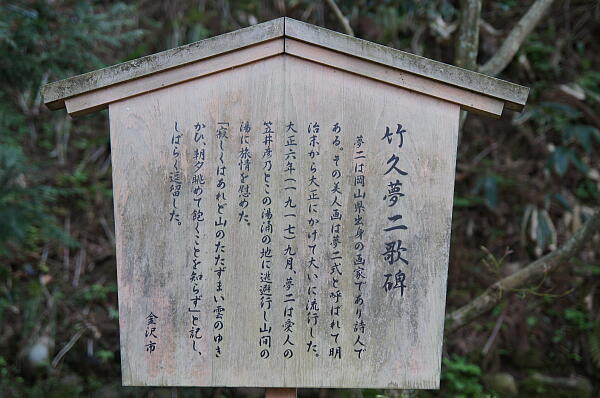 竹久夢二歌碑
夢二は岡山県出身の画家であり詩人で
ある。その美人画は夢二式と呼ばれて明
治末から大正にかけて大いに流行した。
大正六年(一九一七)九月、夢二は愛人の
笠井彦乃とこの湯涌の地に逃避行し山間の
湯に旅情を慰めた。
「寂しくはあれど山のたたずまい雲のゆき
かひ、朝夕眺めて飽くことを知らず」と記し、
しばらく逗留した。
金沢市